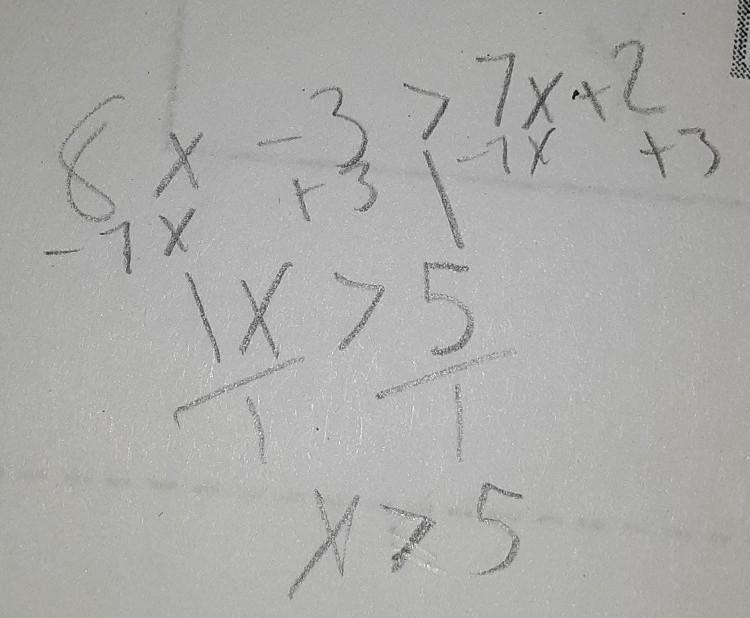 8x - 3 > 7x + 2
-7x +3 | -7x +3
1x > 5
1 1
x > 5